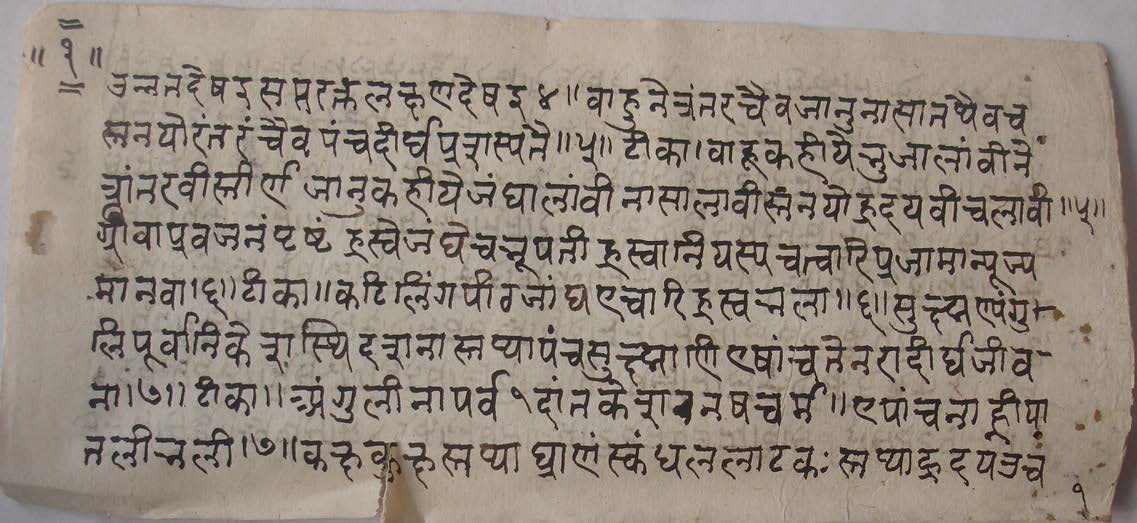 ॥ १ ॥
उन्नत देषइ सप्त रक्त लक्षण देषइ ४ ॥ वाहु नेत्रंतरचैव जानुनासा तथैवच
स्तनयोरंतरं चैव पंचदीर्घ प्रशस्यतै ॥ ५ ॥ टीका । वाहू कहीयै भुजा लांवी ने
त्रांतर वीस्तीर्ण जानु कहीयै जंघा लांवी नासा लावी स्तनयो हृदय वीच लावी ॥ ५ ॥
ग्रीवा प्रवजनं पृष्टं ह्रस्वे जंघे च ह्रस्वानि यस्य चत्वारि पुजामान्पूज्य
मानवा । ६ ॥ टीका ॥ कटि लिंग पीठ जांघ ए च्चारि ह्रस्व भला ॥ ६ ॥
लि पूर्वानि केशास्थि दशना पंच एषां च ते नरा दीर्घ जीव
ना । ७ ॥ टीका ॥ अंगुलीना पर्व १ दांत केश नष चर्म ॥ ए पांच नाह्री पा
तली भली । ७ ॥ घ्राणं स्कंध ललाटकः हृदय
१